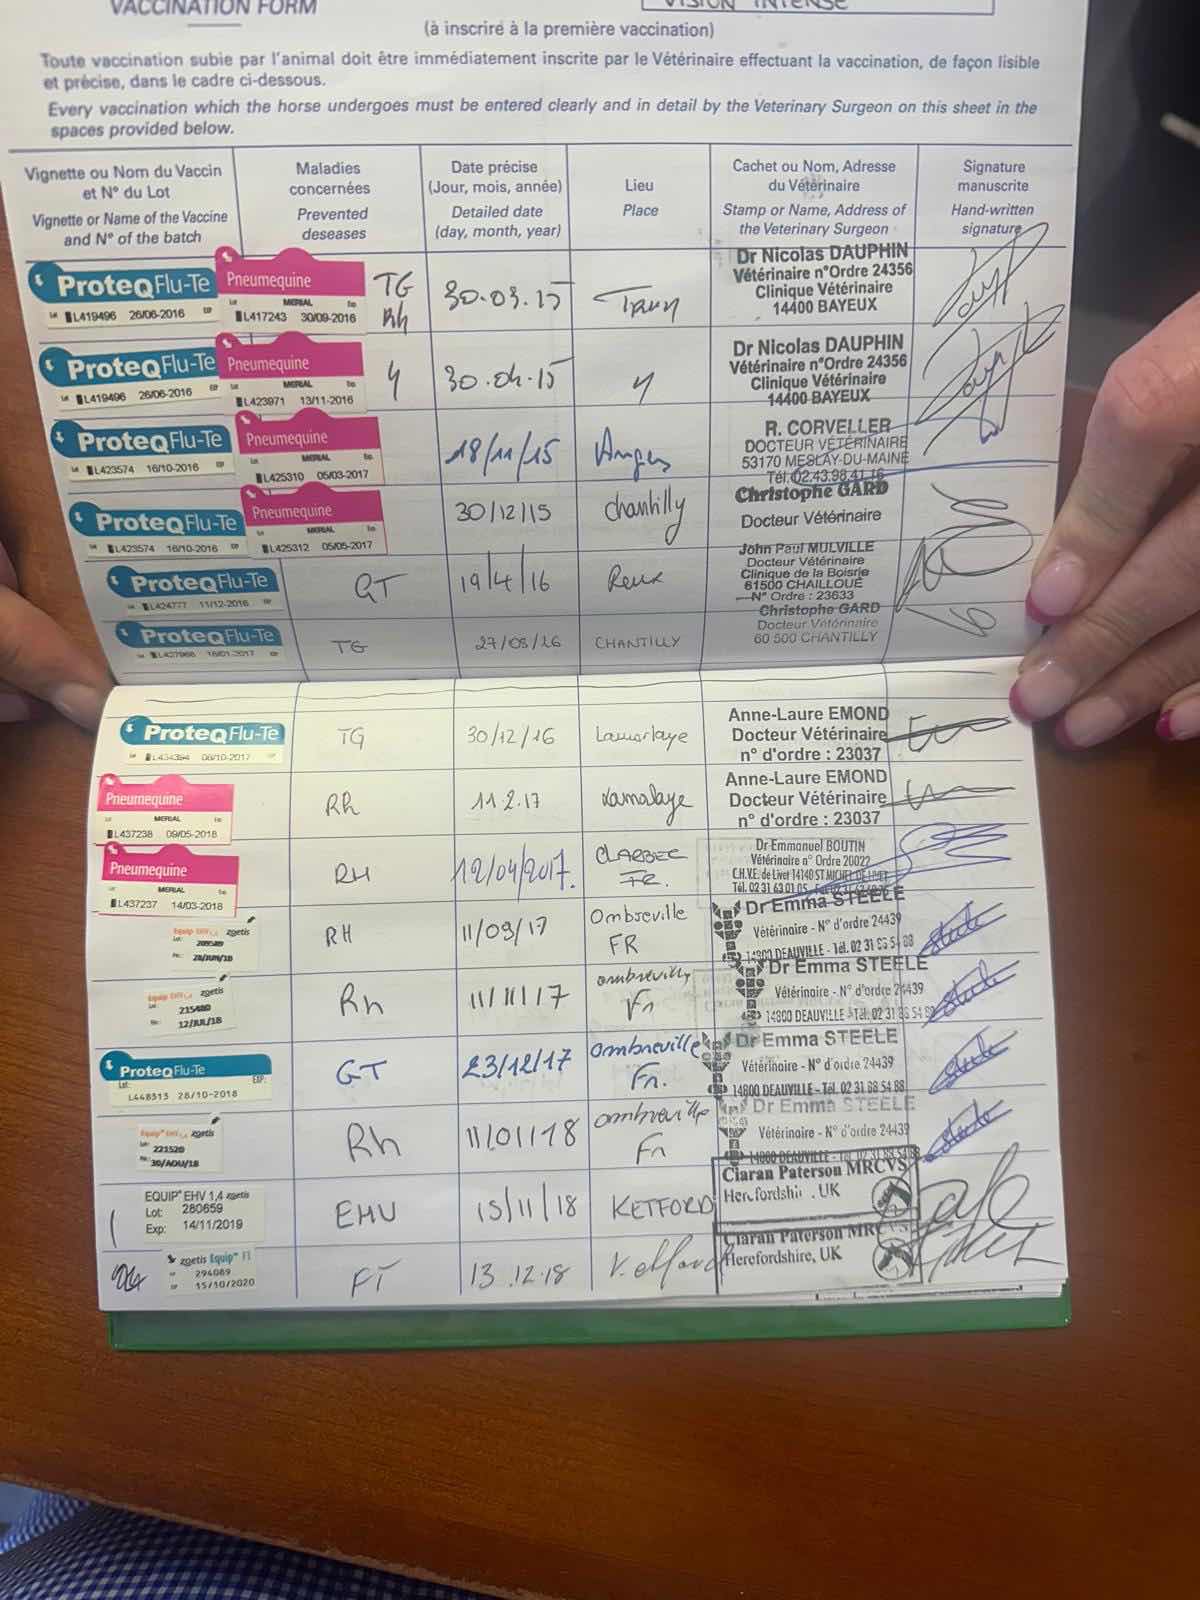 VACCINATION FORM
VISION INTENSE
(à inscrire à la première vaccination)
Toute vaccination subie par l'animal doit être immédiatement inscrite par le Vétérinaire effectuant la vaccination, de façon lisible
et précise, dans le cadre ci-dessous.
Every vaccination which the horse undergoes must be entered clearly and in detail by the Veterinary Surgeon on this sheet in the
spaces provided below.
Vignette ou Nom du Vaccin
et N° du Lot
Vignette or Name of the Vaccine
and N° of the batch
Maladies
concernées
Prevented
deseases
Date précise
(Jour, mois, année)
Detailed date
(day, month, year)
Lieu
Place
Cachet ou Nom, Adresse
du Vétérinaire
Stamp or Name, Address of
the Veterinary Surgeon
Signature
manuscrite
Hand-written
signature
ProteqFlu-Te
Lot L419496 26/06/2016 EXP
Pneumequine
Lot MERIAL Exp
L417243 30/09/2016
TG
Rh
30.03.15
Dr Nicolas DAUPHIN
Vétérinaire n°Ordre 24356
Clinique Vétérinaire
14400 BAYEUX
ProteqFlu-Te
Lot L419496 26/06/2016 EXP
Pneumequine
Lot MERIAL Exp
L423971 13/11/2016
30.04.15
Dr Nicolas DAUPHIN
Vétérinaire n°Ordre 24356
Clinique Vétérinaire
14400 BAYEUX
ProteqFlu-Te
Lot L423574 16/10/2016 EXP
Pneumequine
Lot MERIAL Exp
L425310 05/03/2017
18/11/15
Angers
R. CORVELLER
DOCTEUR VÉTÉRINAIRE
53170 MESLAY-DU-MAINE
Tél. 02.43.98.41.16
ProteqFlu-Te
Lot L423574 16/10/2016 EXP
Pneumequine
Lot MERIAL Exp
L425312 05/05/2017
30/12/15
Chantilly
Christophe GARD
Docteur Vétérinaire
ProteqFlu-Te
L424777 11/12/2016 EXP
GT
19/4/16
Reux
John Paul MULVILLE
Docteur Vétérinaire
Clinique de la Boisrie
61500 CHAILLOUÉ
N° Ordre : 23633
ProteqFlu-Te
TG
CHANTILLY
Christophe GARD
Docteur Vétérinaire
60 500 CHANTILLY
ProteqFlu-Te
TG
30/12/16
Lamorlaye
Anne-Laure EMOND
Docteur Vétérinaire
n° d'ordre : 23037
Pneumequine
Lot MERIAL Exp
L437238 09/05/2018
Rh
11.2.17
Lamorlaye
Anne-Laure EMOND
Docteur Vétérinaire
n° d'ordre : 23037
Pneumequine
Lot MERIAL Exp
L437237 14/03/2018
RH
12/04/2017.
CLARBEC
FR.
Dr Emmanuel BOUTIN
Vétérinaire n° Ordre 20022
C.H.V.E. de Livet 14140 ST MICHEL DE LIVET
Tél. 02 31 63 01 05
Equip EHV 1,4 zoetis
28/JUN/18
RH
11/09/17
Ombreville
FR
Dr Emma STEELE
Vétérinaire - N° d'ordre 24439
14800 DEAUVILLE - Tél. 02 31 88 54 88
Equip EHV 1,4 zoetis
215480
12/JUL/18
Rh
11/11/17
ombreville
Fr
Dr Emma STEELE
Vétérinaire - N° d'ordre 24439
14800 DEAUVILLE - Tél. 02 31 88 54 88
ProteqFlu-Te
Lot: EXP:
L448313 28/10/2018
GT
23/12/17
Ombreville
Fr.
Dr Emma STEELE
Vétérinaire - N° d'ordre 24439
14800 DEAUVILLE - Tél. 02 31 88 54 88
Equip EHV 1,4 zoetis
221520
30/AOU/18
Rh
11/01/18
ombreville
Fr
Dr Emma STEELE
Vétérinaire - N° d'ordre 24439
14800 DEAUVILLE - Tél. 02 31 88 54 88
EQUIP® EHV 1,4 zoetis
Lot: 280659
Exp: 14/11/2019
EHV
15/11/18
KETFORD
Ciaran Paterson MRCVS
Herefordshire, UK
zoetis Equip™ FT
294089
15/10/2020
FT
13.12.18
Ketford
Ciaran Paterson MRCVS
Herefordshire, UK